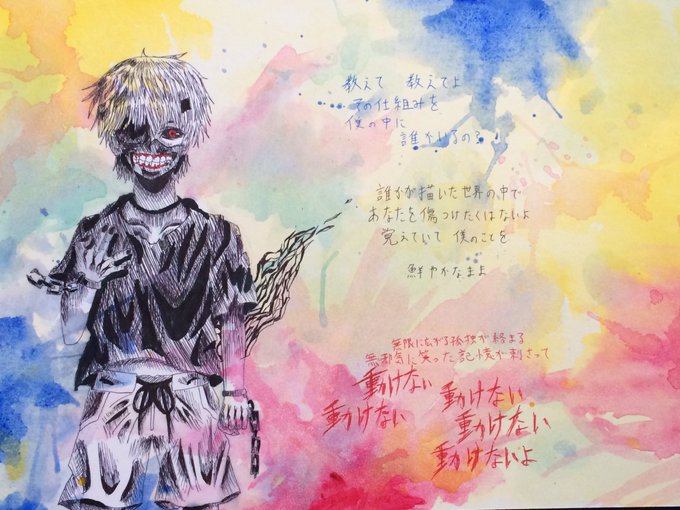 教えて 教えてよ
その仕組みを
僕の中に
誰がいるの?
誰かが描いた世界の中で
あなたを傷つけたくはないよ
覚えていて 僕のことを
鮮やかなまま
無限に広がる孤独が絡まる
無邪気に笑った記憶が刺さって
動けない 動けない
動けない 動けない
動けないよ